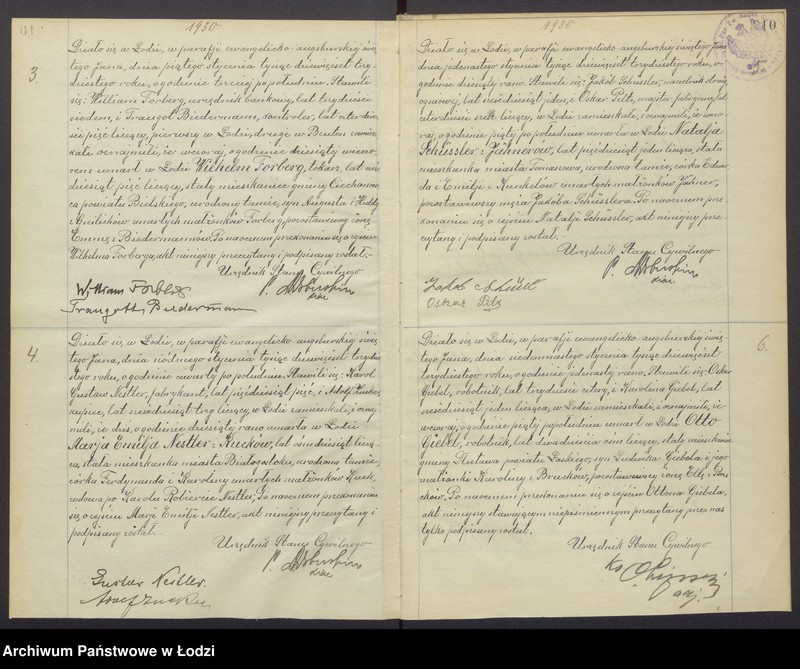 1930
3.
Działo się w Łodzi, w parafji ewangelicko-augsburskiej świę-
tego Jana, dnia piątego stycznia tysiąc dziewięćset trzy-
dziestego roku, o godzinie trzeciej po południu. Stawili
się: William Forberg, urzędnik bankowy, lat trzydzieści
siedem, i Traugot Biedermann, kontroler, lat czterdzie-
ści pięć liczący, pierwszy w Łodzi, drugi w zamiesz-
kali i oznajmili, że wczoraj, o godzinie dziesiątej wieczo-
rem umarł w Łodzi Wilhelm Forberg, tokarz, lat sześć-
dziesiąt pięć liczący, stały mieszkaniec gminy Ciechanow-
ca powiatu Bielskiego, urodzony tamże, syn Augusta i
i zmarłych małżonków Forberg, pozostawiwszy żonę
Emmę z Biedermannów. Po naocznem przekonaniu się o zejściu
Wilhelma Forberga, akt niniejszy przeczytany i podpisany został.-
Urzędnik Stanu Cywilnego
William Forberg
Traugott Biedermann
4.
Działo się w Łodzi, w parafji ewangelicko-augsburskiej świę-
tego Jana, dnia siódmego stycznia tysiąc dziewięćset trzydzie-
stego roku, o godzinie czwartej po południu. Stawili się: Karol
Gustaw Nestler, fabrykant, lat pięćdziesiąt pięć, i Adolf Zucker,
kupiec, lat sześćdziesiąt trzy liczący, w Łodzi zamieszkali, i oznaj-
mili, że dziś, o godzinie dziesiątej rano umarła w Łodzi
Marja Emilja Nestler z Kucków, lat ośmdziesiąt liczą-
ca, stała mieszkanka miasta Białegostoku, urodzona tamże,
córka Ferdynanda i Karoliny zmarłych małżonków Kuck,
wdowa po Karolu Robercie Nestler. Po naocznem przekonaniu
się o zejściu Marji Emilji Nestler, akt niniejszy przeczytany i
podpisany został.
Urzędnik Stanu Cywilnego
Gustav Nestler.
Adolf Zucker
1930
10
Działo się w Łodzi, w parafji ewangelicko-augsburskiej świętego Jana
dnia jedenastego stycznia tysiąc dziewięćset trzydziestego roku, o
godzinie dziesiątej rano. Stawili się: Jakób Schüssler,
lat sześćdziesiąt jeden, i Oskar Peltz, majster fabryczny, lat
czterdzieści sześć liczący, w Łodzi zamieszkali, i oznajmili, że wczo-
raj, o godzinie piątej po południu umarła w Łodzi Natalja
Schüssler z Jähnerów, lat pięćdziesiąt jeden licząca, stała
mieszkanka miasta Tomaszowa, urodzona tamże, córka Edwar-
da i Emilji z Kunkelów zmarłych małżonków Jähner,
pozostawiwszy męża Jakóba Schüsslera. Po naocznem prze-
konaniu się o zejściu Natalji Schüssler, akt niniejszy prze-
czytany i podpisany został.
Urzędnik Stanu Cywilnego
Oskar Peltz
6.
Działo się w Łodzi, w parafji ewangelicko-augsburskiej świę-
tego Jana, dnia siedemnastego stycznia tysiąc dziewięćset
trzydziestego roku, o godzinie jedenastej rano. Stawili się: Oskar
Giebel, robotnik, lat trzydzieści cztery, i Karolina Giebel, lat
sześćdziesiąt jeden licząca, w Łodzi zamieszkali, i oznajmili, że
wczoraj, o godzinie piątej po południu umarł w Łodzi Otto
Giebel, robotnik, lat dwadzieścia ośm liczący, stały mieszkaniec
gminy Dłutowa powiatu Łaskiego, syn Ludwika Giebela i jego
małżonki Karoliny z Brucków, pozostawiwszy żonę Ellę z
Po naocznem przekonaniu się o zejściu Ottona Giebela,
akt niniejszy stawającym niepiśmiennym przeczytany przez nas
tylko podpisany został.
Urzędnik Stanu Cywilnego
Archiwum Państwowe w Łodzi